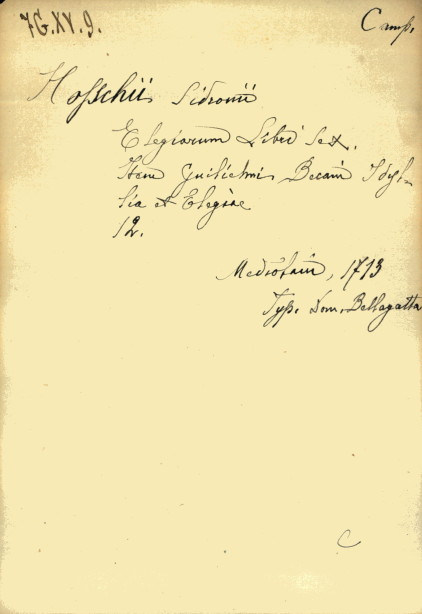 7G.XV.9.
Camp.
Hosschii Sidronii
Elegiarum Libri Sex.
Item Guilielmi Becani Idyl-
lia et Elegiae
12.
Mediolani, 1713
Typ. Dom. Bellagatta
C